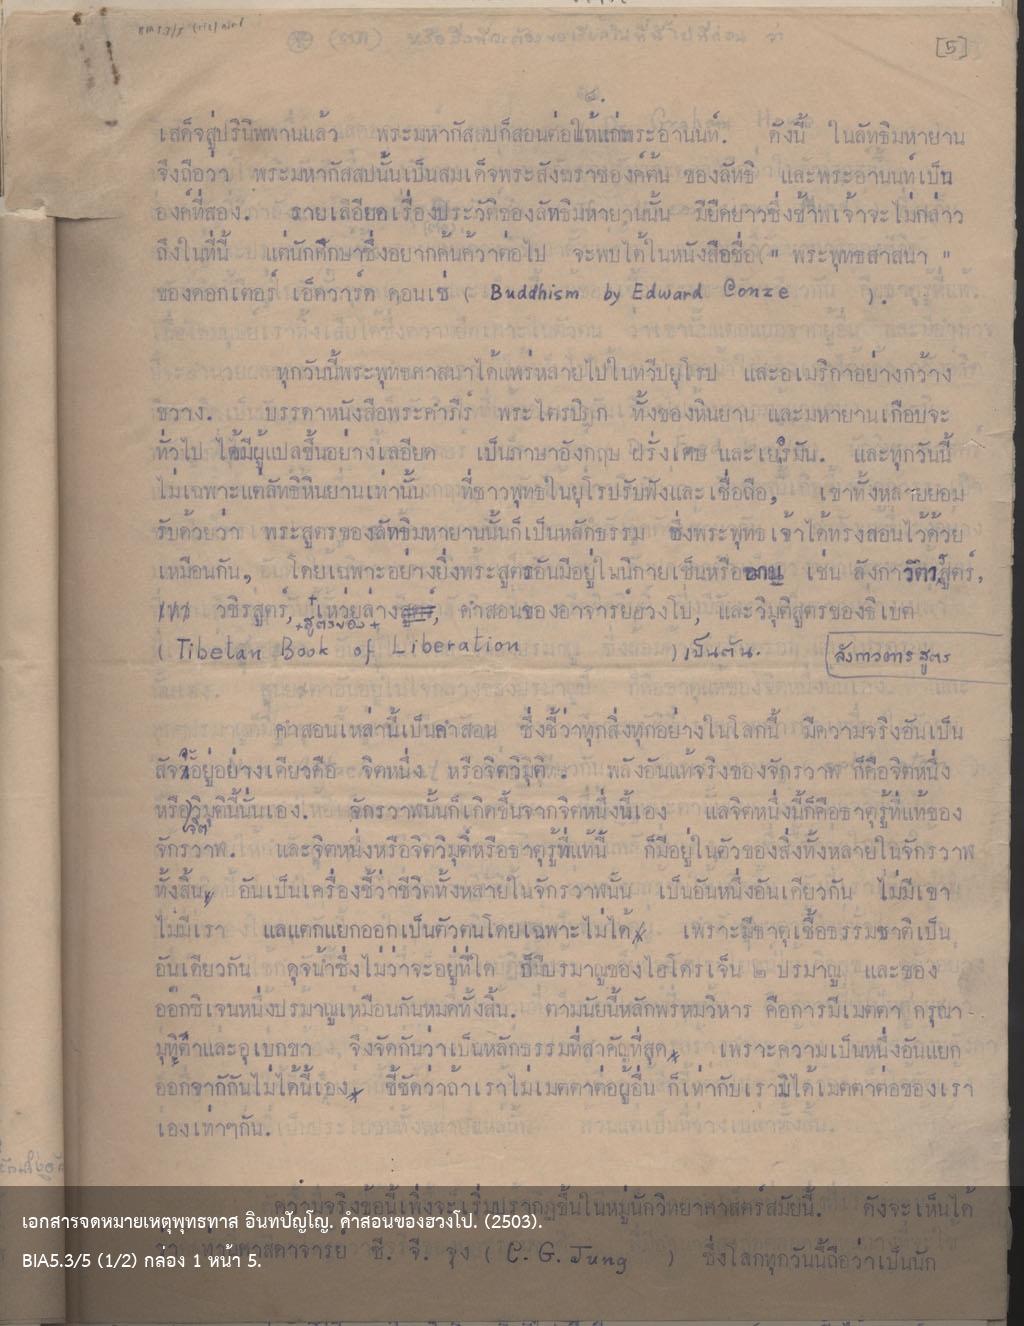 [5]
๔.
เสด็จสู่ปรินิพพานแล้ว พระมหากัสสปก็สอนต่อให้แก่พระอานนท์. ดังนี้ ในลัทธิมหายาน
จึงถือว่า พระมหากัสสปนั้นเป็นสมเด็จพระสังฆราชองค์ต้น ของลัทธิ และพระอานนท์เป็น
องค์ที่สอง. รายเลอียดเรื่องประวัติของลัทธิมหายานนั้น มียืดยาวซึ่งข้าพเจ้าจะไม่กล่าว
ถึงในที่นี้ แต่นักศึกษาซึ่งอยากค้นคว้าต่อไป จะพบได้ในหนังสือชื่อ " พระพุทธสาสนา "
ของดอกเตอร์ เอ็ดวาร์ด คอนเซ่ ( Buddhism by Edward Conze ).
ทุกวันนี้พระพุทธศาสนาได้แพร่หลายไปในทวีปยุโรป และอเมริกาอย่างกว้าง
ขวาง. บรรดาหนังสือพระคำภีร์ พระไตรปิฎก ทั้งของหินยาน และมหายานเกือบจะ
ทั่วไป ได้มีผู้แปลขึ้นอย่างเลอียด เป็นภาษาอังกฤษ ฝรั่งเศษ และเยรมัน. และทุกวันนี้
ไม่เฉพาะแต่ลัทธิหินยานเท่านั้น ที่ชาวพุทธในยุโรปรับฟังและเชื่อถือ, เขาทั้งหลายยอม
รับด้วยว่า พระสูตรของลัทธิมหายานนั้นก็เป็นหลักธรรม ซึ่งพระพุทธเจ้าได้ทรงสอนไว้ด้วย
เหมือนกัน, โดยเฉพาะอย่างยิ่งพระสูตรอันมีอยู่ในนิกายเซ็นหรือฌาน เช่น ลังกาวตารสูตร์,
วชิรสูตร์, สูตรของเหว่ยล่าง, คำสอนของอาจารย์ฮวงโป, และวิมุติสูตรของธิเบต
( Tibetan Book of Liberation ) เป็นต้น. ลังกาวตารสูตร
คำสอนเหล่านี้เป็นคำสอน ซึ่งชี้ว่าทุกสิ่งทุกอย่างในโลกนี้ มีความจริงอันเป็น
สัจจ์อยู่อย่างเดียวคือ จิตหนึ่ง หรือจิตวิมุติ. พลังอันแท้จริงของจักรวาฬ ก็คือจิตหนึ่ง
หรือจิตวิมุตินี้นั่นเอง. จักรวาฬนั้นก็เกิดขึ้นจากจิตหนึ่งนี้เอง แลจิตหนึ่งนี้ก็คือธาตุรู้ที่แท้ของ
จักรวาฬ. และจิตหนึ่งหรือจิตวิมุติ์หรือธาตุรู้ที่แท้นี้ ก็มีอยู่ในตัวของสิ่งทั้งหลายในจักรวาฬ
ทั้งสิ้น, อันเป็นเครื่องชี้ว่าชีวิตทั้งหลายในจักรวาฬนั้น เป็นอันหนึ่งอันเดียวกัน ไม่มีเขา
ไม่มีเรา แลแตกแยกออกเป็นตัวตนโดยเฉพาะไม่ได้ เพราะมีธาตุเชื้อธรรมชาติเป็น
อันเดียวกัน ดุจน้ำซึ่งไม่ว่าจะอยู่ที่ใด ก็มีปรมาณูของไฮโดรเจ็น ๒ ปรมาณู และของ
ออกซิเจนหนึ่งปรมาณูเหมือนกันหมดทั้งสิ้น. ตามนัยนี้หลักพรหมวิหาร คือการมีเมตตา กรุณา
มุทิตาและอุเบกขา จึงจัดกันว่าเป็นหลักธรรมที่สำคัญที่สุด เพราะความเป็นหนึ่งอันแยก
ออกจากกันไม่ได้นี้เอง ชี้ชัดว่าถ้าเราไม่เมตตาต่อผู้อื่น ก็เท่ากับเรามิได้เมตตาต่อของเรา
เองเท่าๆกัน.
ความจริงข้อนี้เพิ่งจะเริ่มปรากฏขึ้นในหมู่นักวิทยาศาสตร์สมัยนี้. ดังจะเห็นได้
ว่า ท่านศาสดาจารย์ ซี. จี. จุง ( C. G. Jung ) ซึ่งโลกทุกวันนี้ถือว่าเป็นนัก
เอกสารจดหมายเหตุพุทธทาส อินทปัญโญ. คำสอนของฮวงโป. (2503).
BIA5.3/5 (1/2) กล่อง 1 หน้า 5.